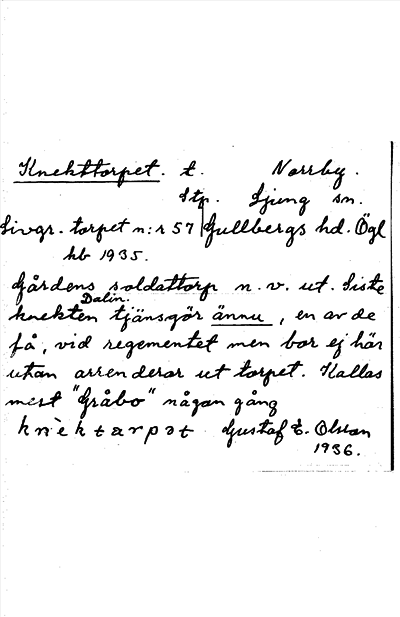 Knekttorpet. t. Norrby.
Stp. Ljung sn.
Livgr. torpet n:r 57 Gullbergs hd. Ögl
hb 1935.
Gårdens soldattorp n.v. ut. Siste
knekten Dalin. tjänsgör ännu, en av de
få, vid regementet men bor ej här
utan arrenderar ut torpet. Kallas
mest "Gråbo" någon gång
Gustaf E. Olsson
1936.